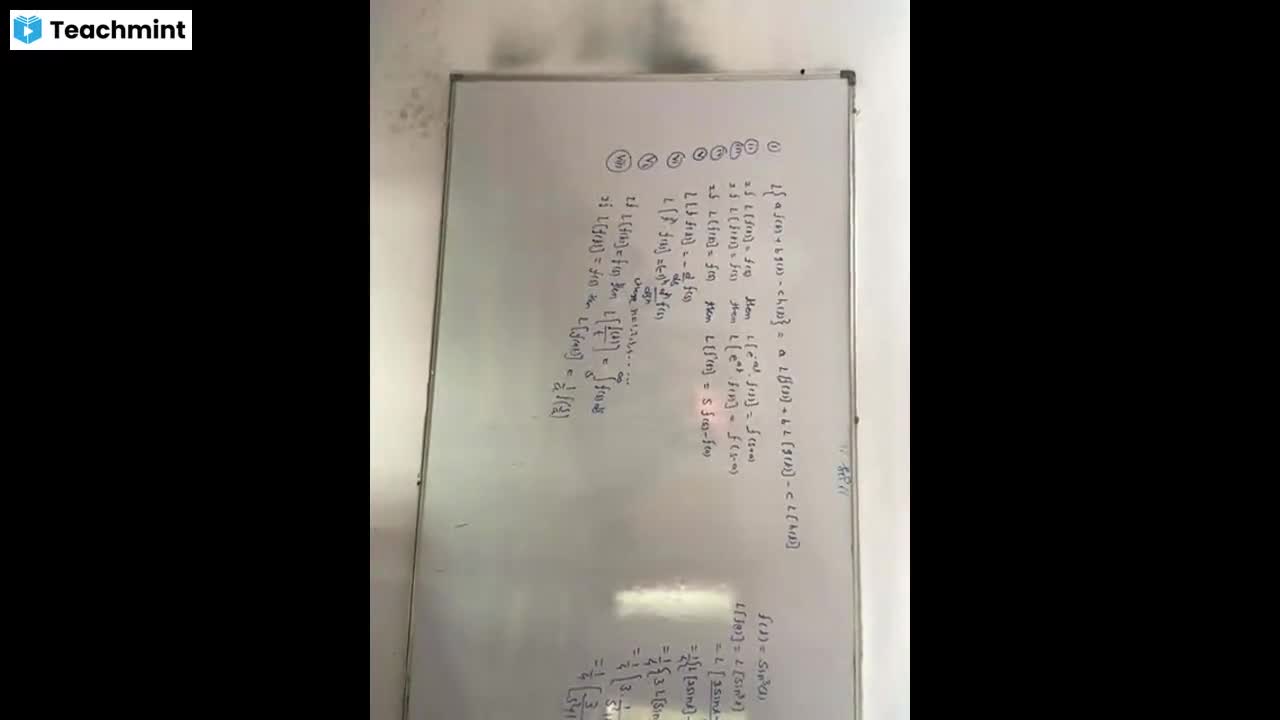 Teachmint
।। श्री ।।
(i) L{a f(t) + b g(t) - c h(t)} = a L[f(t)] + b L[g(t)] - c L[h(t)]
(ii) If L[f(t)] = f(s) then L[e^-at . f(t)] = f(s+a)
(iii) If L[f(t)] = f(s) then L[e^at . f(t)] = f(s-a)
(iv) If L[f(t)] = f(s) then L[f'(t)] = s f(s) - f(0)
(v) L[t f(t)] = - d/ds f(s)
(vi) L[t^n f(t)] = (-1)^n d^n/ds^n f(s)
where n = 1, 2, 3, ......
If L[f(t)] = f(s) then L[f(t)/t] = ∫ s ∞ f(s) ds
(viii) If L[f(t)] = f(s) then L[f(at)] = 1/a f(s/a)
f(t) = sin³(t)
L[f(t)] = L[sin³t]
= L[3sint -
= 1/4{L[3sint] -
= 1/4{3 L[sin
= 1/4[3 . 1/s²+1
= 1/4[3/s²+1